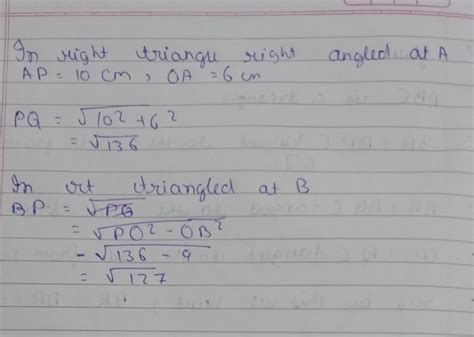 In right triangu right angled at A
AP = 10 cm, OA = 6 cm
PQ = √10² + 6²
= √136
In rt driangled at B
BP = √PQ
= √PO² - OB²
- √136 - 9
= √127